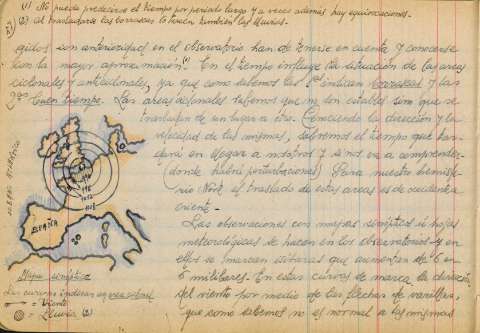 (1) No pueda predecirse el tiempo por período largo y a veces además hay equivocaciones.
(2) Al trasladarse las borrascas lo hacen también las lluvias.
gidos con anterioridad en el observatorio han de tenerse en cuenta y conocerse
con la mayor aproximación. En el tiempo influye la situación de las areas
ciclonales y anticiclonales, ya que como sabemos las 1as indican borrascas y las
2as buen tiempo. Las areas ciclonales sabemos que no son estables sino que se
trasladan de un lugar a otro. Conociendo la dirección y la
velocidad de las mismas, sabremos el tiempo que tar-
dará en llegar a nosotros y si nos va a comprender
donde habrá perturbaciones. Para nuestro hemisfe-
rio Norte el traslado de estas areas es de occidente a
oriente.
Las observaciones con mapas sinópticos u hojas
meteorológicas se hacen en los observatorios y en
ellos se marcan isobaras que aumentan de 6 en
6 milibares. En estas curvas se marca la dirección
del viento por medio de las flechas de varillas,
que como sabemos no es normal a las mismas
OCEANO ATLANTICO
ESPAÑA
Mapa sinóptico
Las curvas indican
Viento
Lluvia (2)